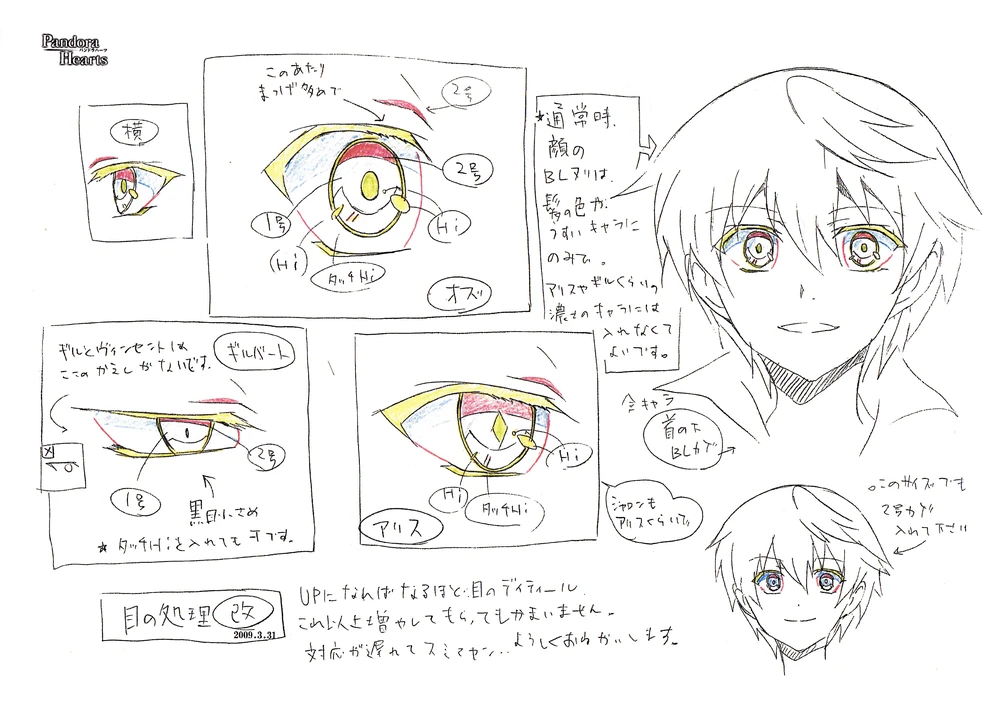 Pandora
パンドラハーツ
Hearts
横
このあたり
まつげ多めで
2号
2号
1号
(Hi)
Hi
タッチHi
オズ
*通常時、
顔の
BLヌリは、
髪の色が
うすいキャラに
のみで。
アリスやギルくらいの
濃さのキャラには
入れなくて
よいです。
ギルとヴィンセントは
ここのかえしがないです。
ギルバート
1号
2号
黒目小さめ
★タッチHiを入れても可です。
Hi
Hi
タッチHi
アリス
シャロンも
アリスくらいで。
全キャラ
首の下
BLカゲ
○このサイズでも
2号カゲ
入れて下さい
目の処理 改
2009.3.31
UPになればなるほど、目のディティール、
これ以上増やしてもらってもかまいません。
対応が遅れてスミマセン..よろしくおねがいします。